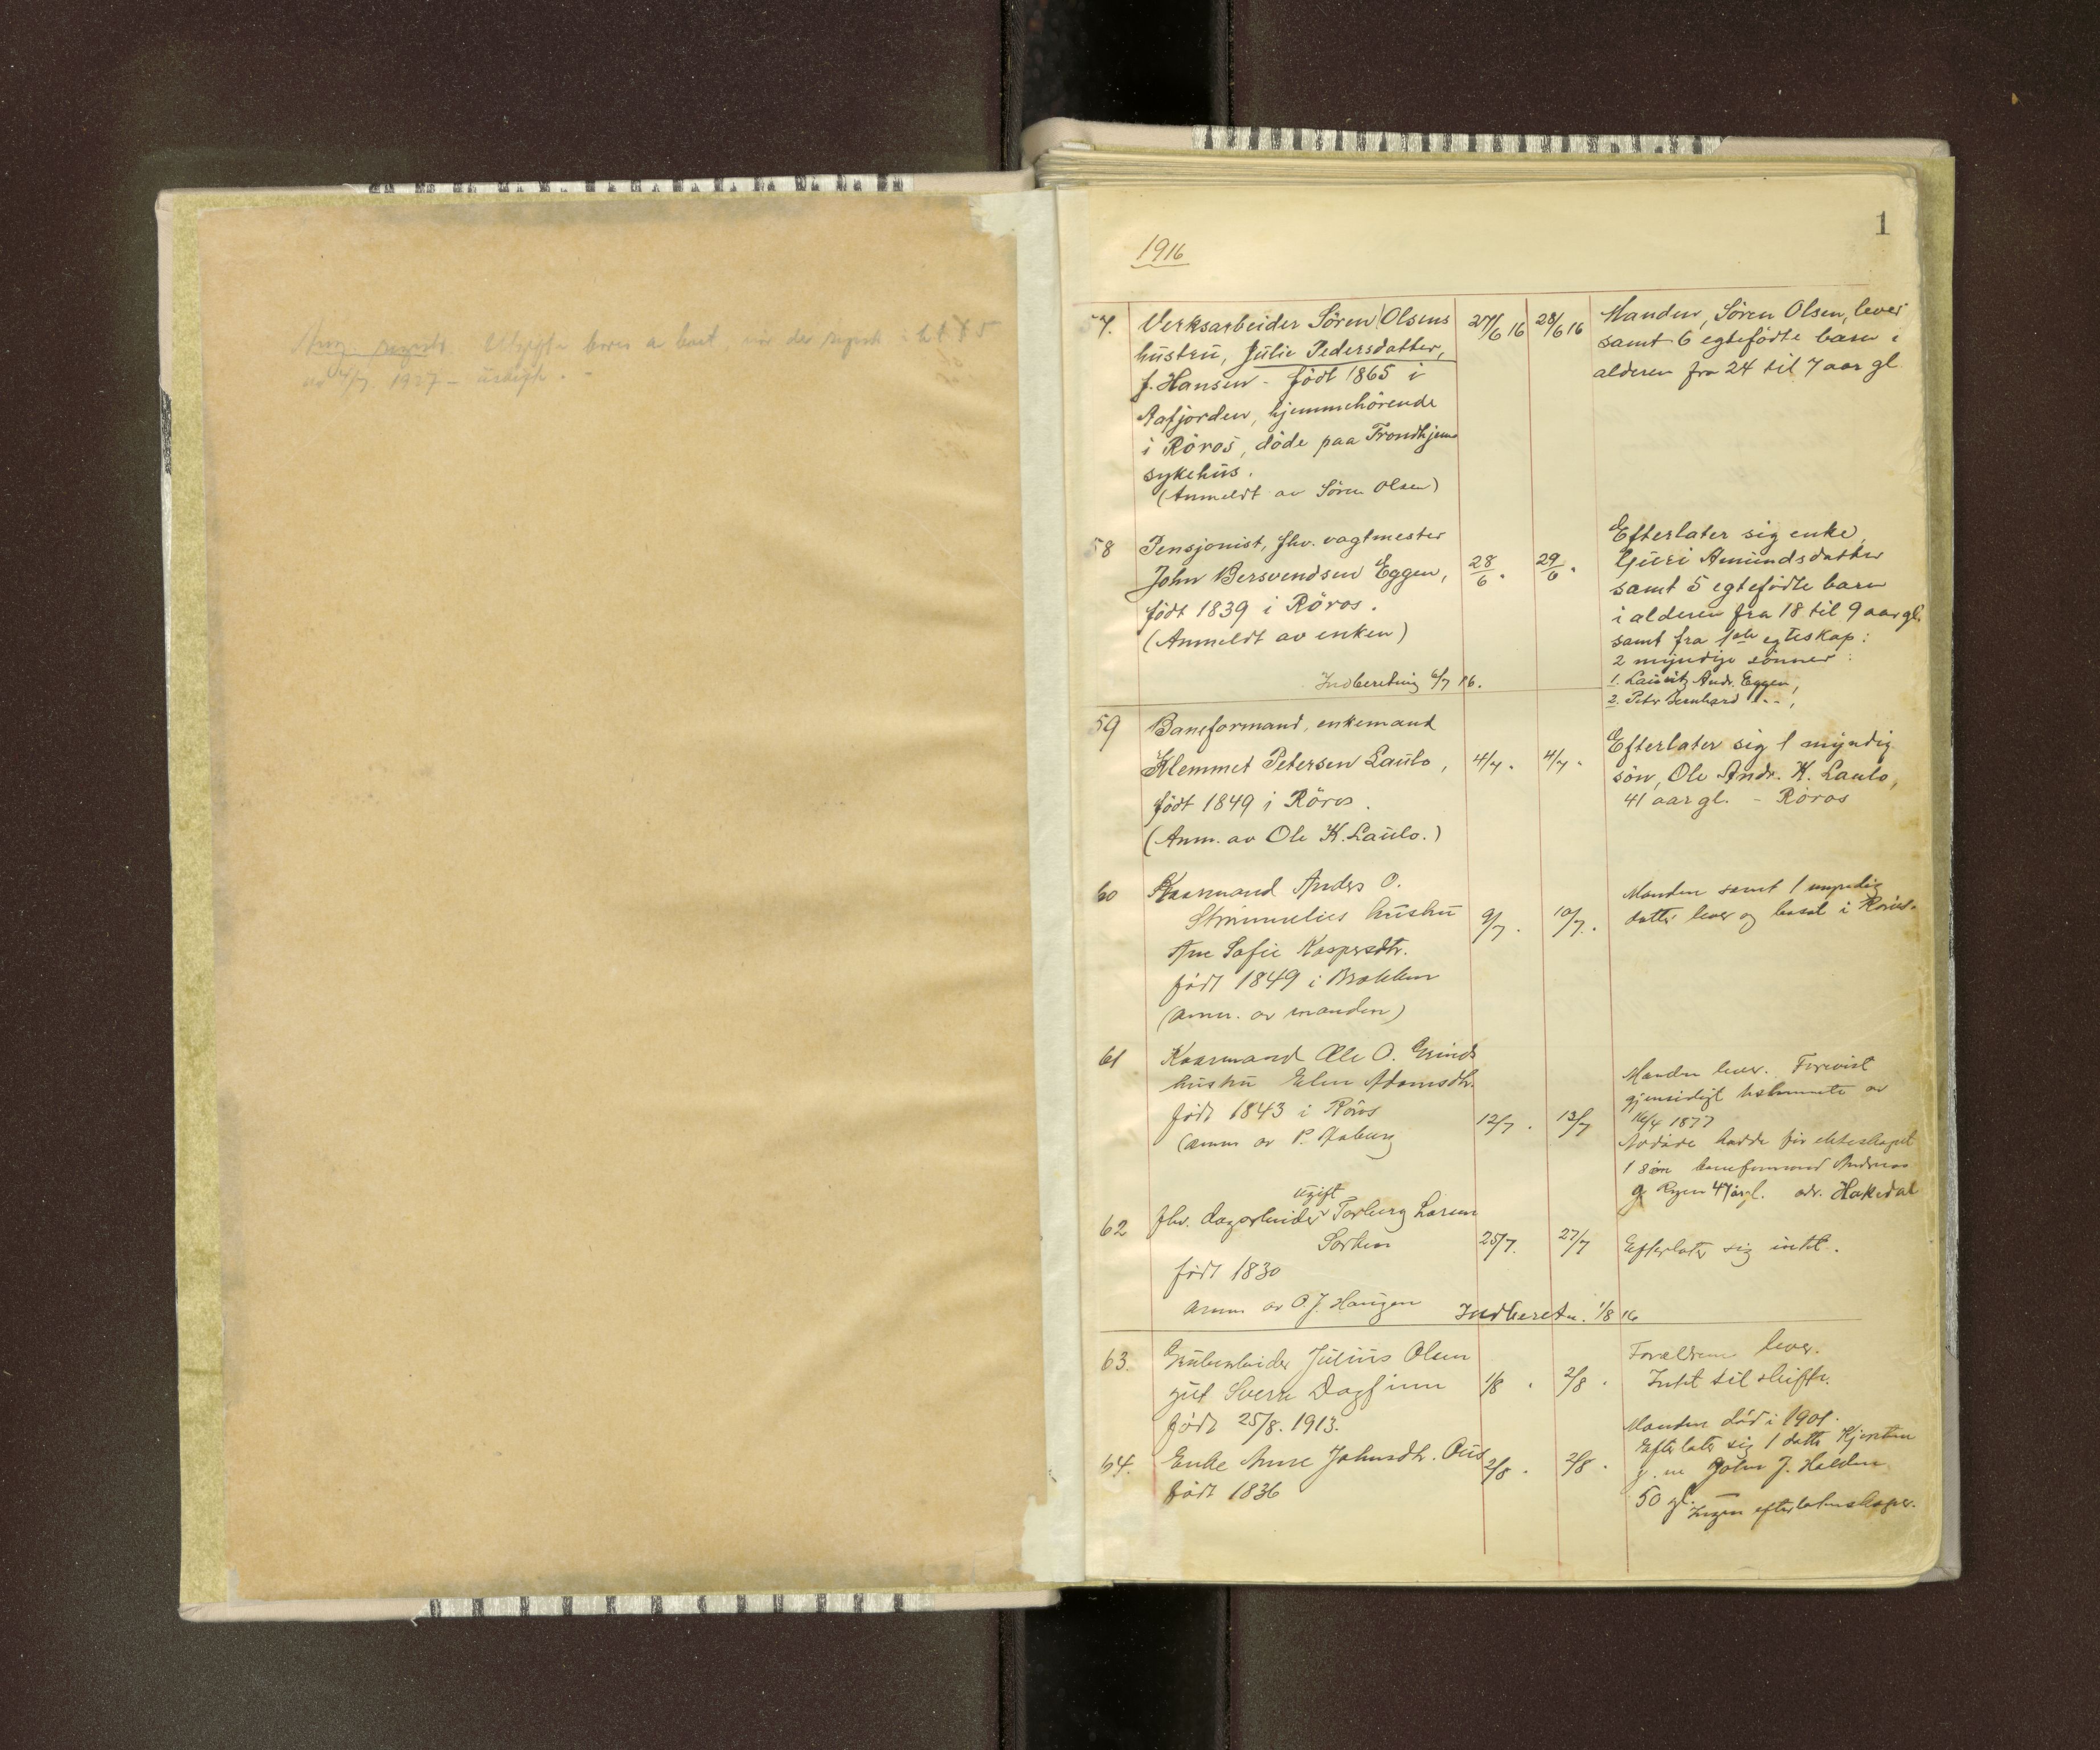 1
1916
57. Verksarbeider Sören Olsens 27/6 16 28/6 16 Manden, Sören Olsen, lever
hustru, Julie Pedersdatter, samt 6 egtefödte barn i
f. Hansen - födt 1865 i alderen fra 24 til 7 aar gl.
Aafjorden, hjemmehörende
i Röros, döde paa Trondhjems
sykehus.
(Anmeldt av Sören Olsen)
58 Pensjonist, fhv. vagtmester Efterlater sig enke,
John Bersvendsen Eggen, 28/6 " 29/6 " Guri Amundsdatter
födt 1839 i Röros. samt 5 egtefödte barn
(Anmeldt av enken) i alderen fra 18 til 9 aar gl.
samt fra 1ste egteskap:
2 myndige sönner:
Indberetning 6/7 16. 1. Lauritz Andr. Eggen,
2. Petr Bernhard - " -,
59 Baneformand, enkemand Efterlater sig 1 myndig
Klemmet Petersen Laulo, 4/7 " 4/7 " sön, Ole Andr. K. Laulo,
födt 1849 i Röros. 41 aar gl. - Röros
(Anm. av Ole K. Laulo.)
60 Kaarmand Anders O. Manden samt 1 myndig
hustru 9/7 " 10/7 " datter lever og bosat i Röros.
Ane Sofie Kaspersdtr.
födt 1849 i Brekken
(anm. av manden)
61 Kaarmand Ole O. Grinds Manden lever. Forevist
hustru Elen Adamsdtr. gjensidigt testamente av
födt 1843 i Röros 12/7 " 13/7 16/4 1877
(anm av P. Aaberg Avdöde hadde för ekteskapet
1 sön baneformand Andreas
G. Ryen 47 år gl. adr. Hakedal
ugift
62 fhv. dagarbeider Torberg Larsen
25/7. 27/7 Efterlater sig intet.
födt 1830
anm av O. J. Haugen Indberetn. 1/8 16
63. Grubearbeider Julius Olsen Forældrene lever.
gut Sverre Dagfinn 1/8 " 2/8 " Intet til skifte.
födt 25/8. 1913. Manden död i 1901.
64. Enke Anne Johnsdtr. Ous 2/8 " 2/8 " Efterlater sig 1 datter Kjersten
födt 1836 g. m John J. Halden
50 gl.
Ingen efterladenskaper.